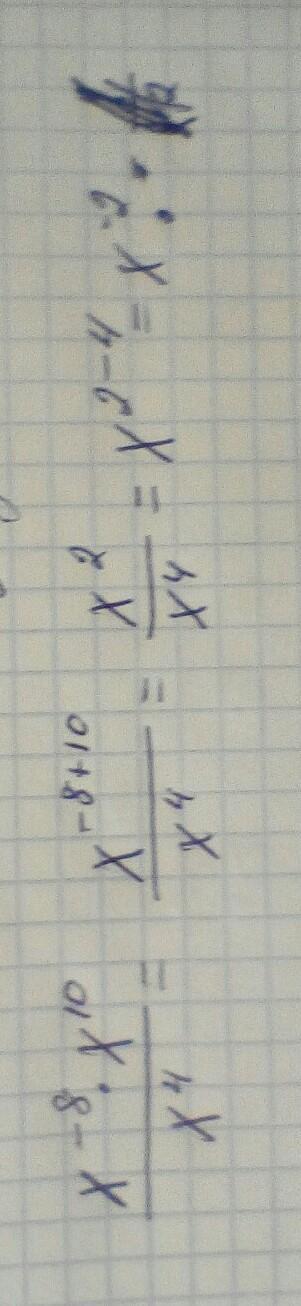 x⁻⁸ · x¹⁰ / x⁴ = x⁻⁸⁺¹⁰ / x⁴ = x² / x⁴ = x²⁻⁴ = x⁻²